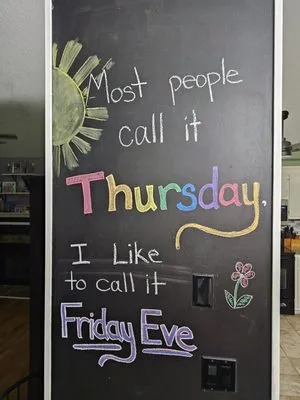 Most people
call it
Thursday,
I Like
to call it
Friday Eve